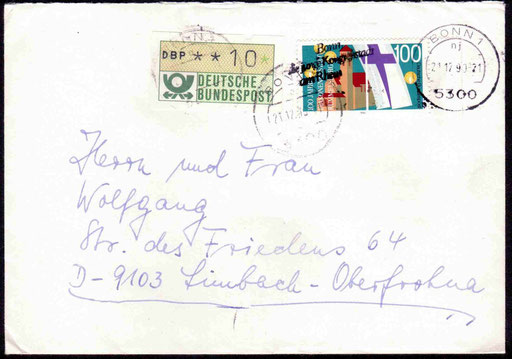 DBP **10
DEUTSCHE
BUNDESPOST
Bonn
am Rhein
100
BONN 1
nj
21.12.90-21
5300
21.12.
Herrn und Frau
Wolfgang
Str. des Friedens 64
D-9103 Limbach-Oberfrohna